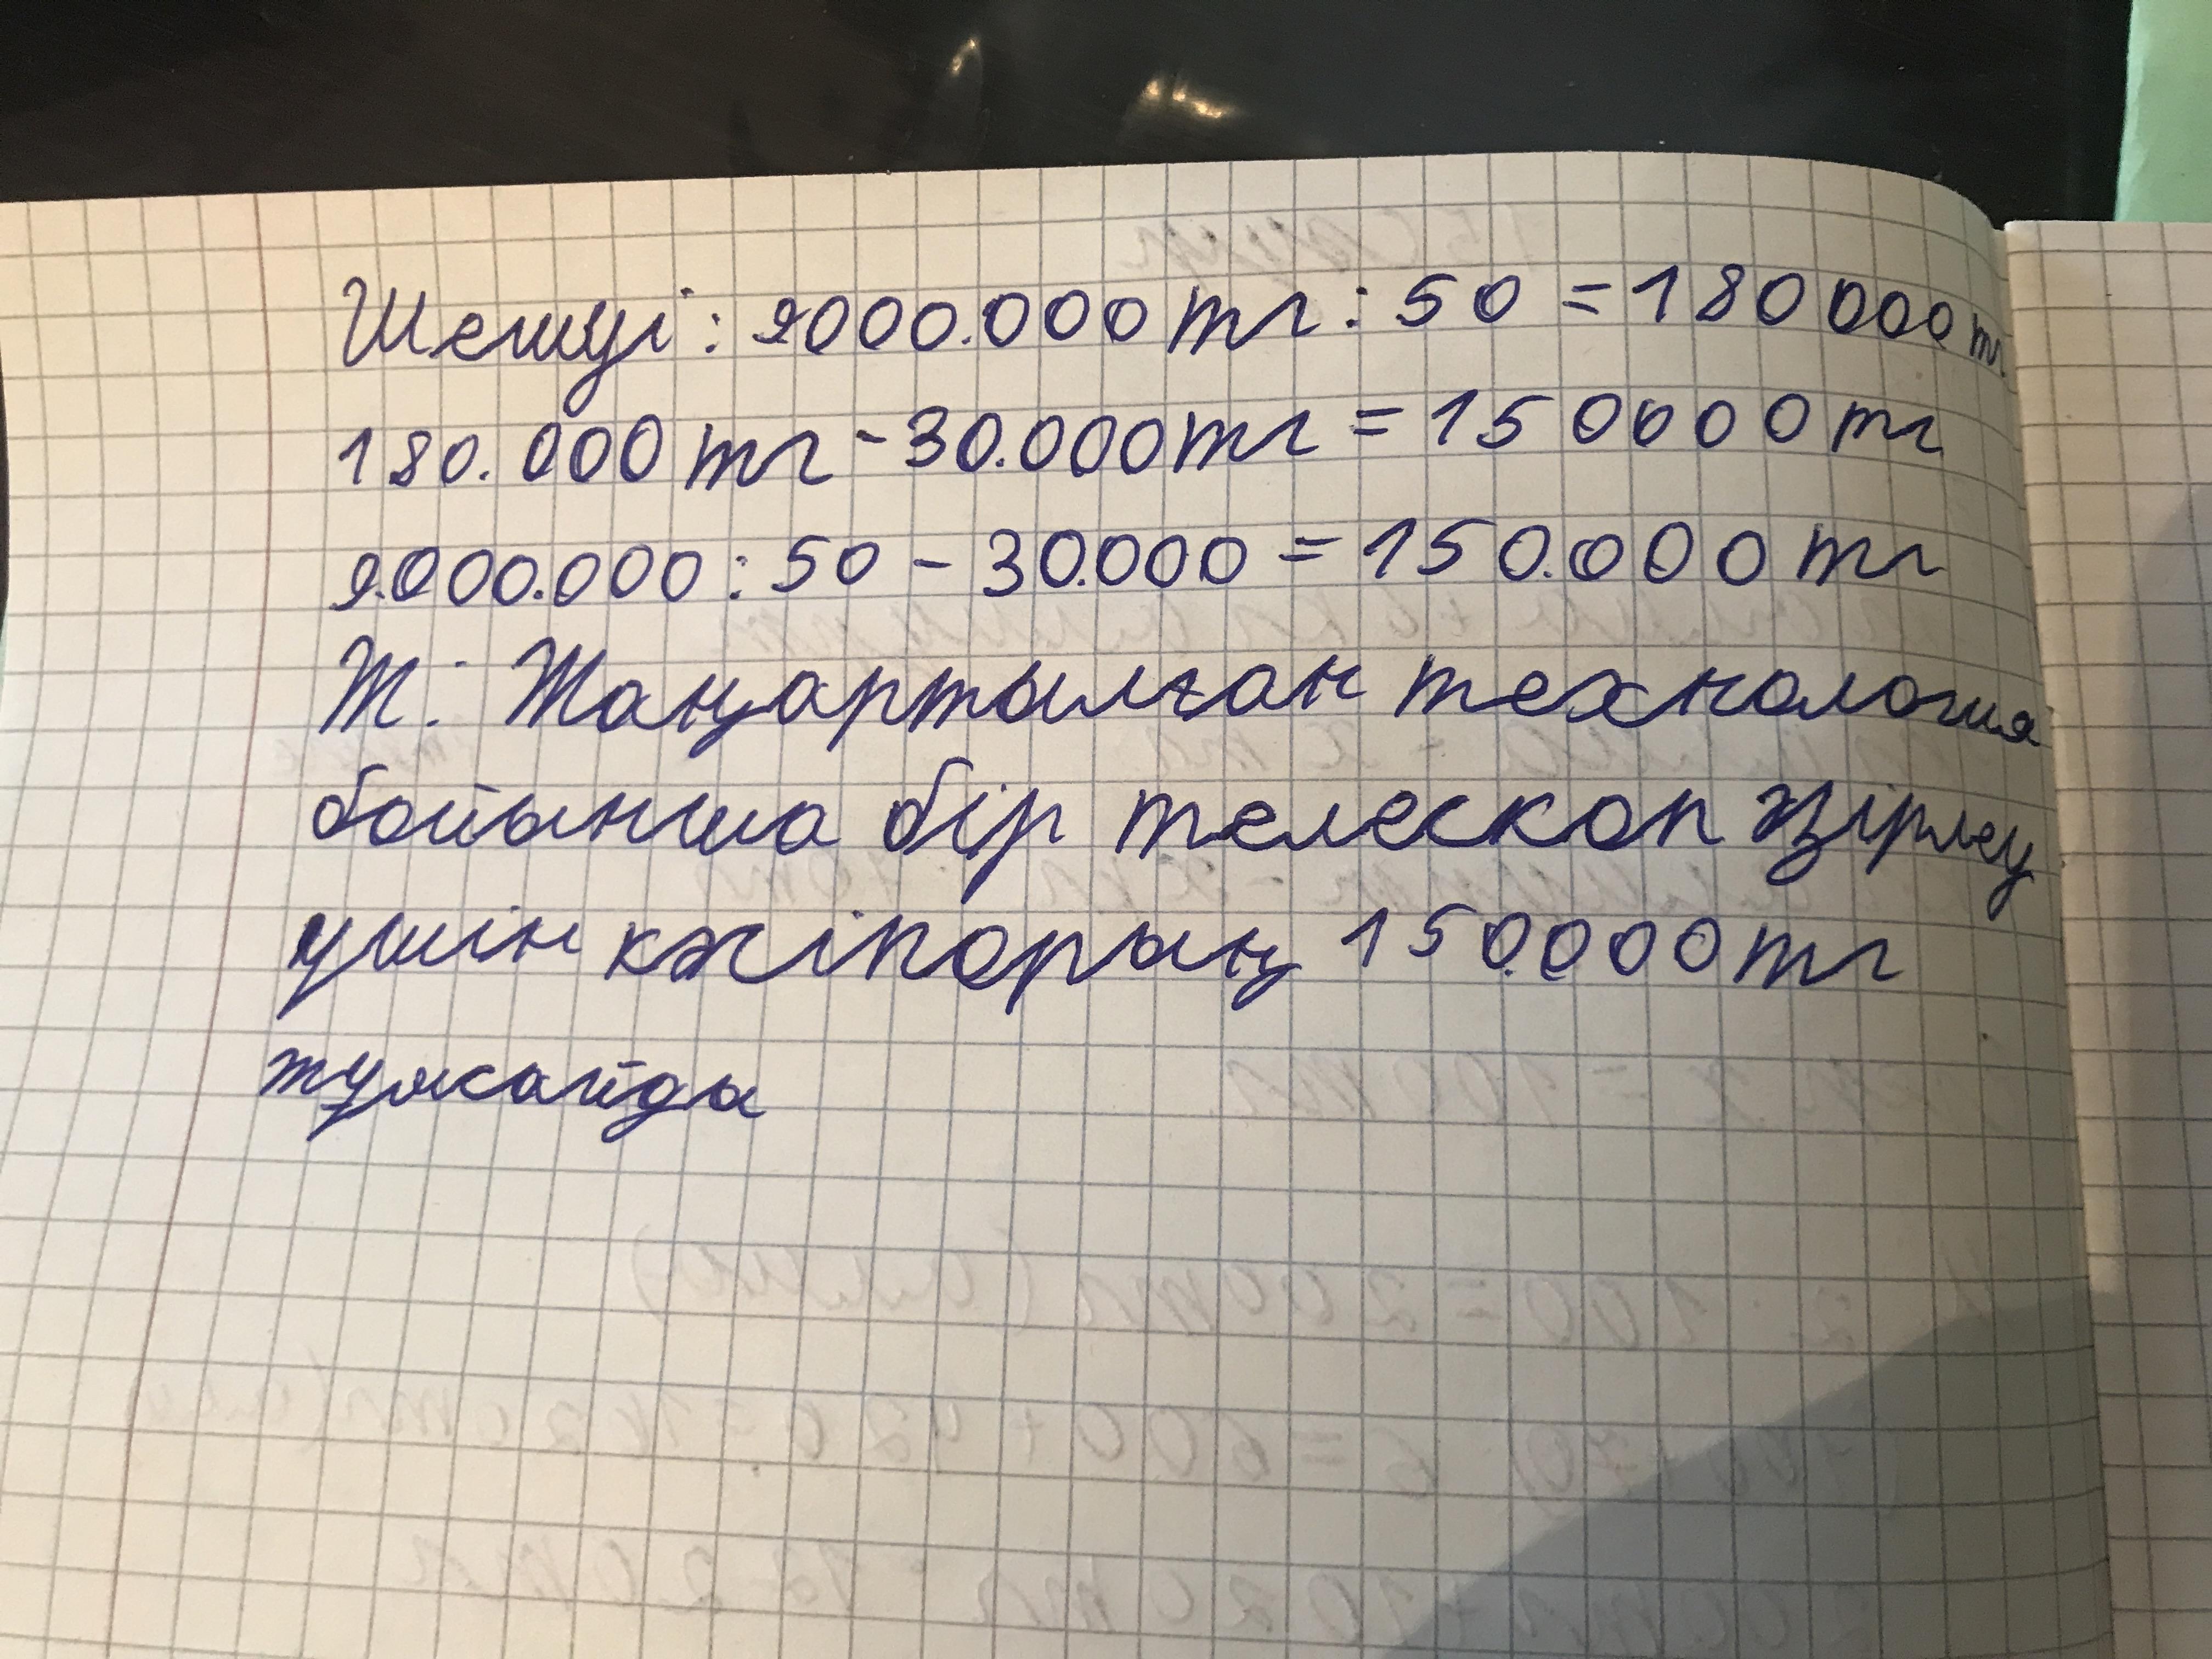 Шешуі: 9000.000 тг : 50 = 180 000 тг
180.000 тг - 30.000 тг = 150000 тг
9.000.000 : 50 - 30.000 = 150.000 тг
Ж: Жаңартылған технология
бойынша бір телескоп әзірлеу
үшін кәсіпорың 150.000 тг
жұмсайды